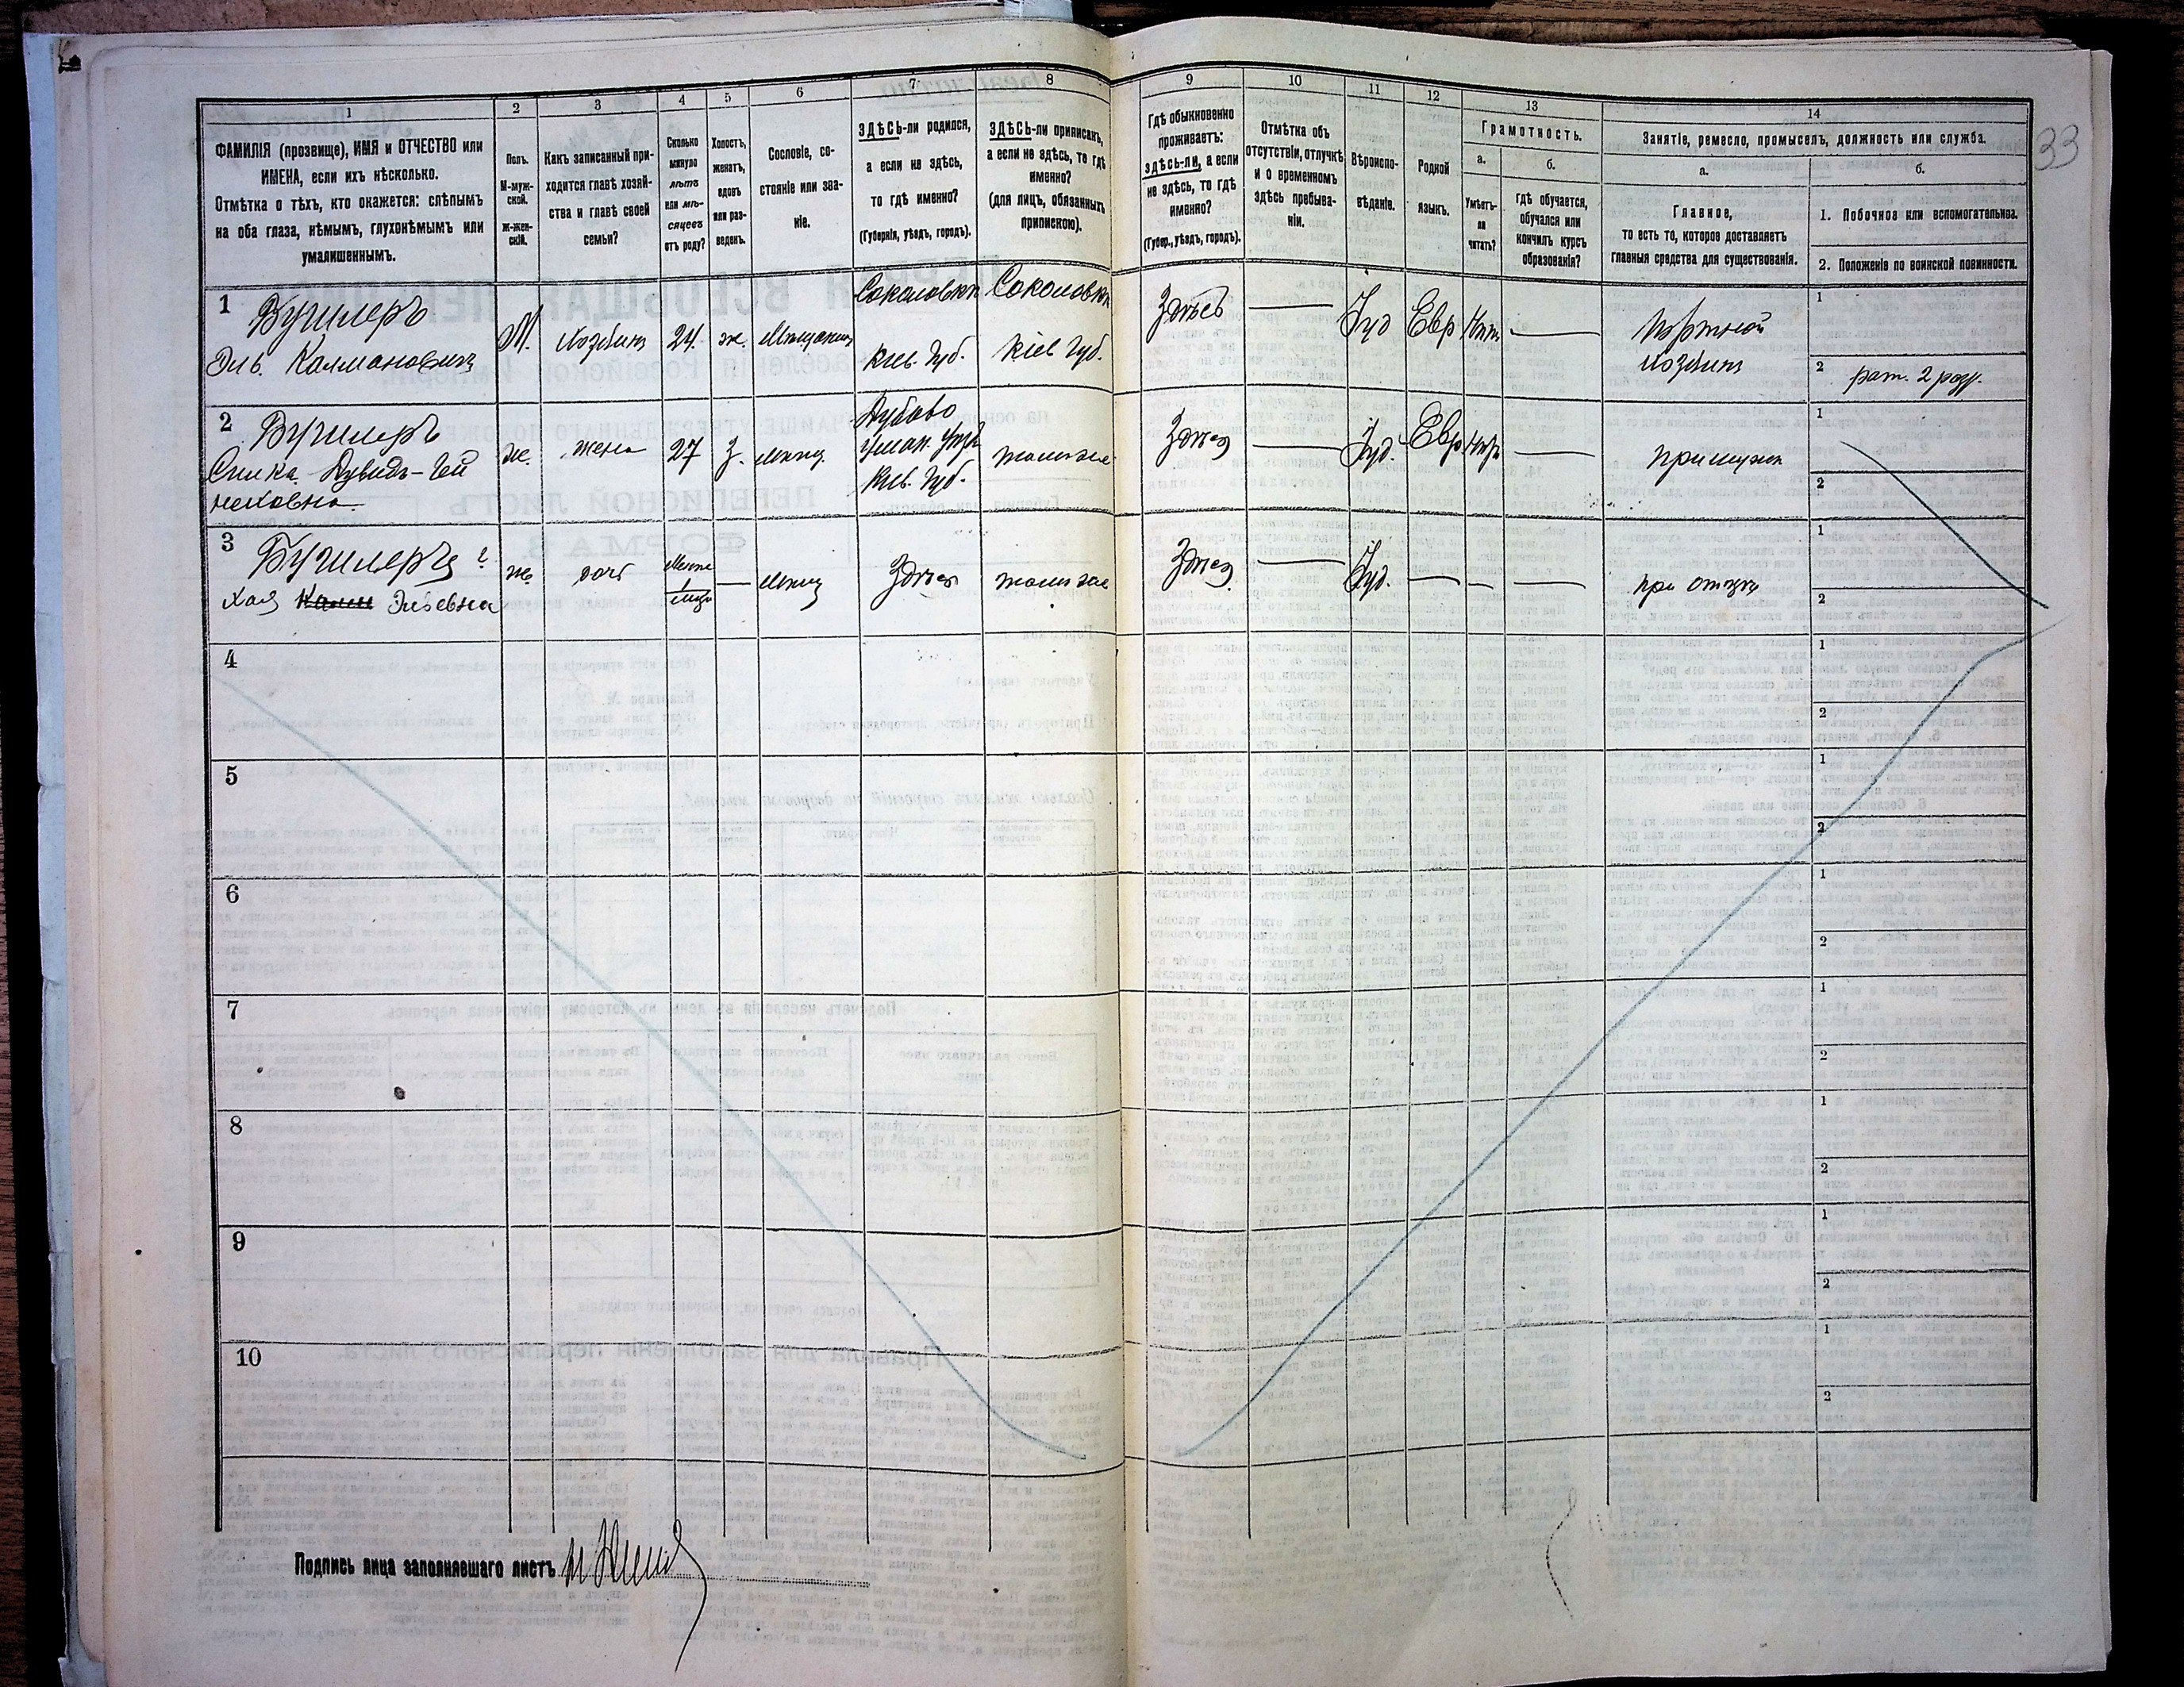 1
ФАМИЛІЯ (прозвище), ИМЯ и ОТЧЕСТВО или
ИМЕНА, если ихъ нѣсколько.
Отмѣтка о тѣхъ, кто окажется: слѣпымъ
на оба глаза, нѣмымъ, глухонѣмымъ или
умалишеннымъ.
2
Полъ.
М-муж-
ской.
Ж-жен-
скій.
3
Какъ записанный при-
ходится главѣ хозяй-
ства и главѣ своей
семьи?
4
Сколько
минуло
лѣтъ
или мѣ-
сяцевъ
отъ роду?
5
Холостъ,
женатъ,
вдовъ
или раз-
веденъ.
6
Сословіе, со-
стояніе или зва-
ніе.
7
ЗДѢСЬ-ли родился,
а если не здѣсь,
то гдѣ именно?
(Губернія, уѣздъ, городъ).
8
ЗДѢСЬ-ли приписанъ,
а если не здѣсь, то гдѣ
именно?
(для лицъ, обязанныхъ
припискою).
9
Гдѣ обыкновенно
проживаетъ:
ЗДѢСЬ-ли, а если
не здѣсь, то гдѣ
именно?
(Губер., уѣздъ, городъ).
10
Отмѣтка объ
отсутствіи, отлучкѣ
и о временномъ
здѣсь пребыва-
ніи.
11
Вѣроиспо-
вѣданіе.
12
Родной
языкъ.
13
Грамотность.
а.
Умѣетъ-
ли
читать?
б.
гдѣ обучается,
обучался или
кончилъ курсъ
образованія?
14
Занятіе, ремесло, промыселъ, должность или служба.
а.
Главное,
то есть то, которое доставляетъ
главныя средства для существованія.
б.
1. Побочное или вспомогательное.
2. Положеніе по воинской повинности.
33
1
Бушлеръ
Эль Калмановичъ
М.
Хозяинъ
24
ж.
Мѣщанинъ
Соколовкѣ
Кіев. Губ.
Соколовкѣ
Кіев Губ.
Здѣсь
Іуд
Евр
Нѣтъ
Портной
хозяинъ
1
2
рат. 2 разр.
2
Бушлеръ
Ж.
жена
27
З.
мѣщ.
Дубово
Уман. Уѣзд
Кіев. Губ.
тамъ же
Здѣсь
Іуд.
Евр
Нѣтъ
при мужѣ
1
2
3
Хая Эльевна
ж
дочь
1
мѣщ
Здѣсь
тамъ же
Здѣсь
Іуд.
при отцѣ
1
2
4
1
2
5
1
2
6
1
2
7
1
2
8
1
2
9
1
2
10
1
2
Подпись лица заполнявшаго листъ